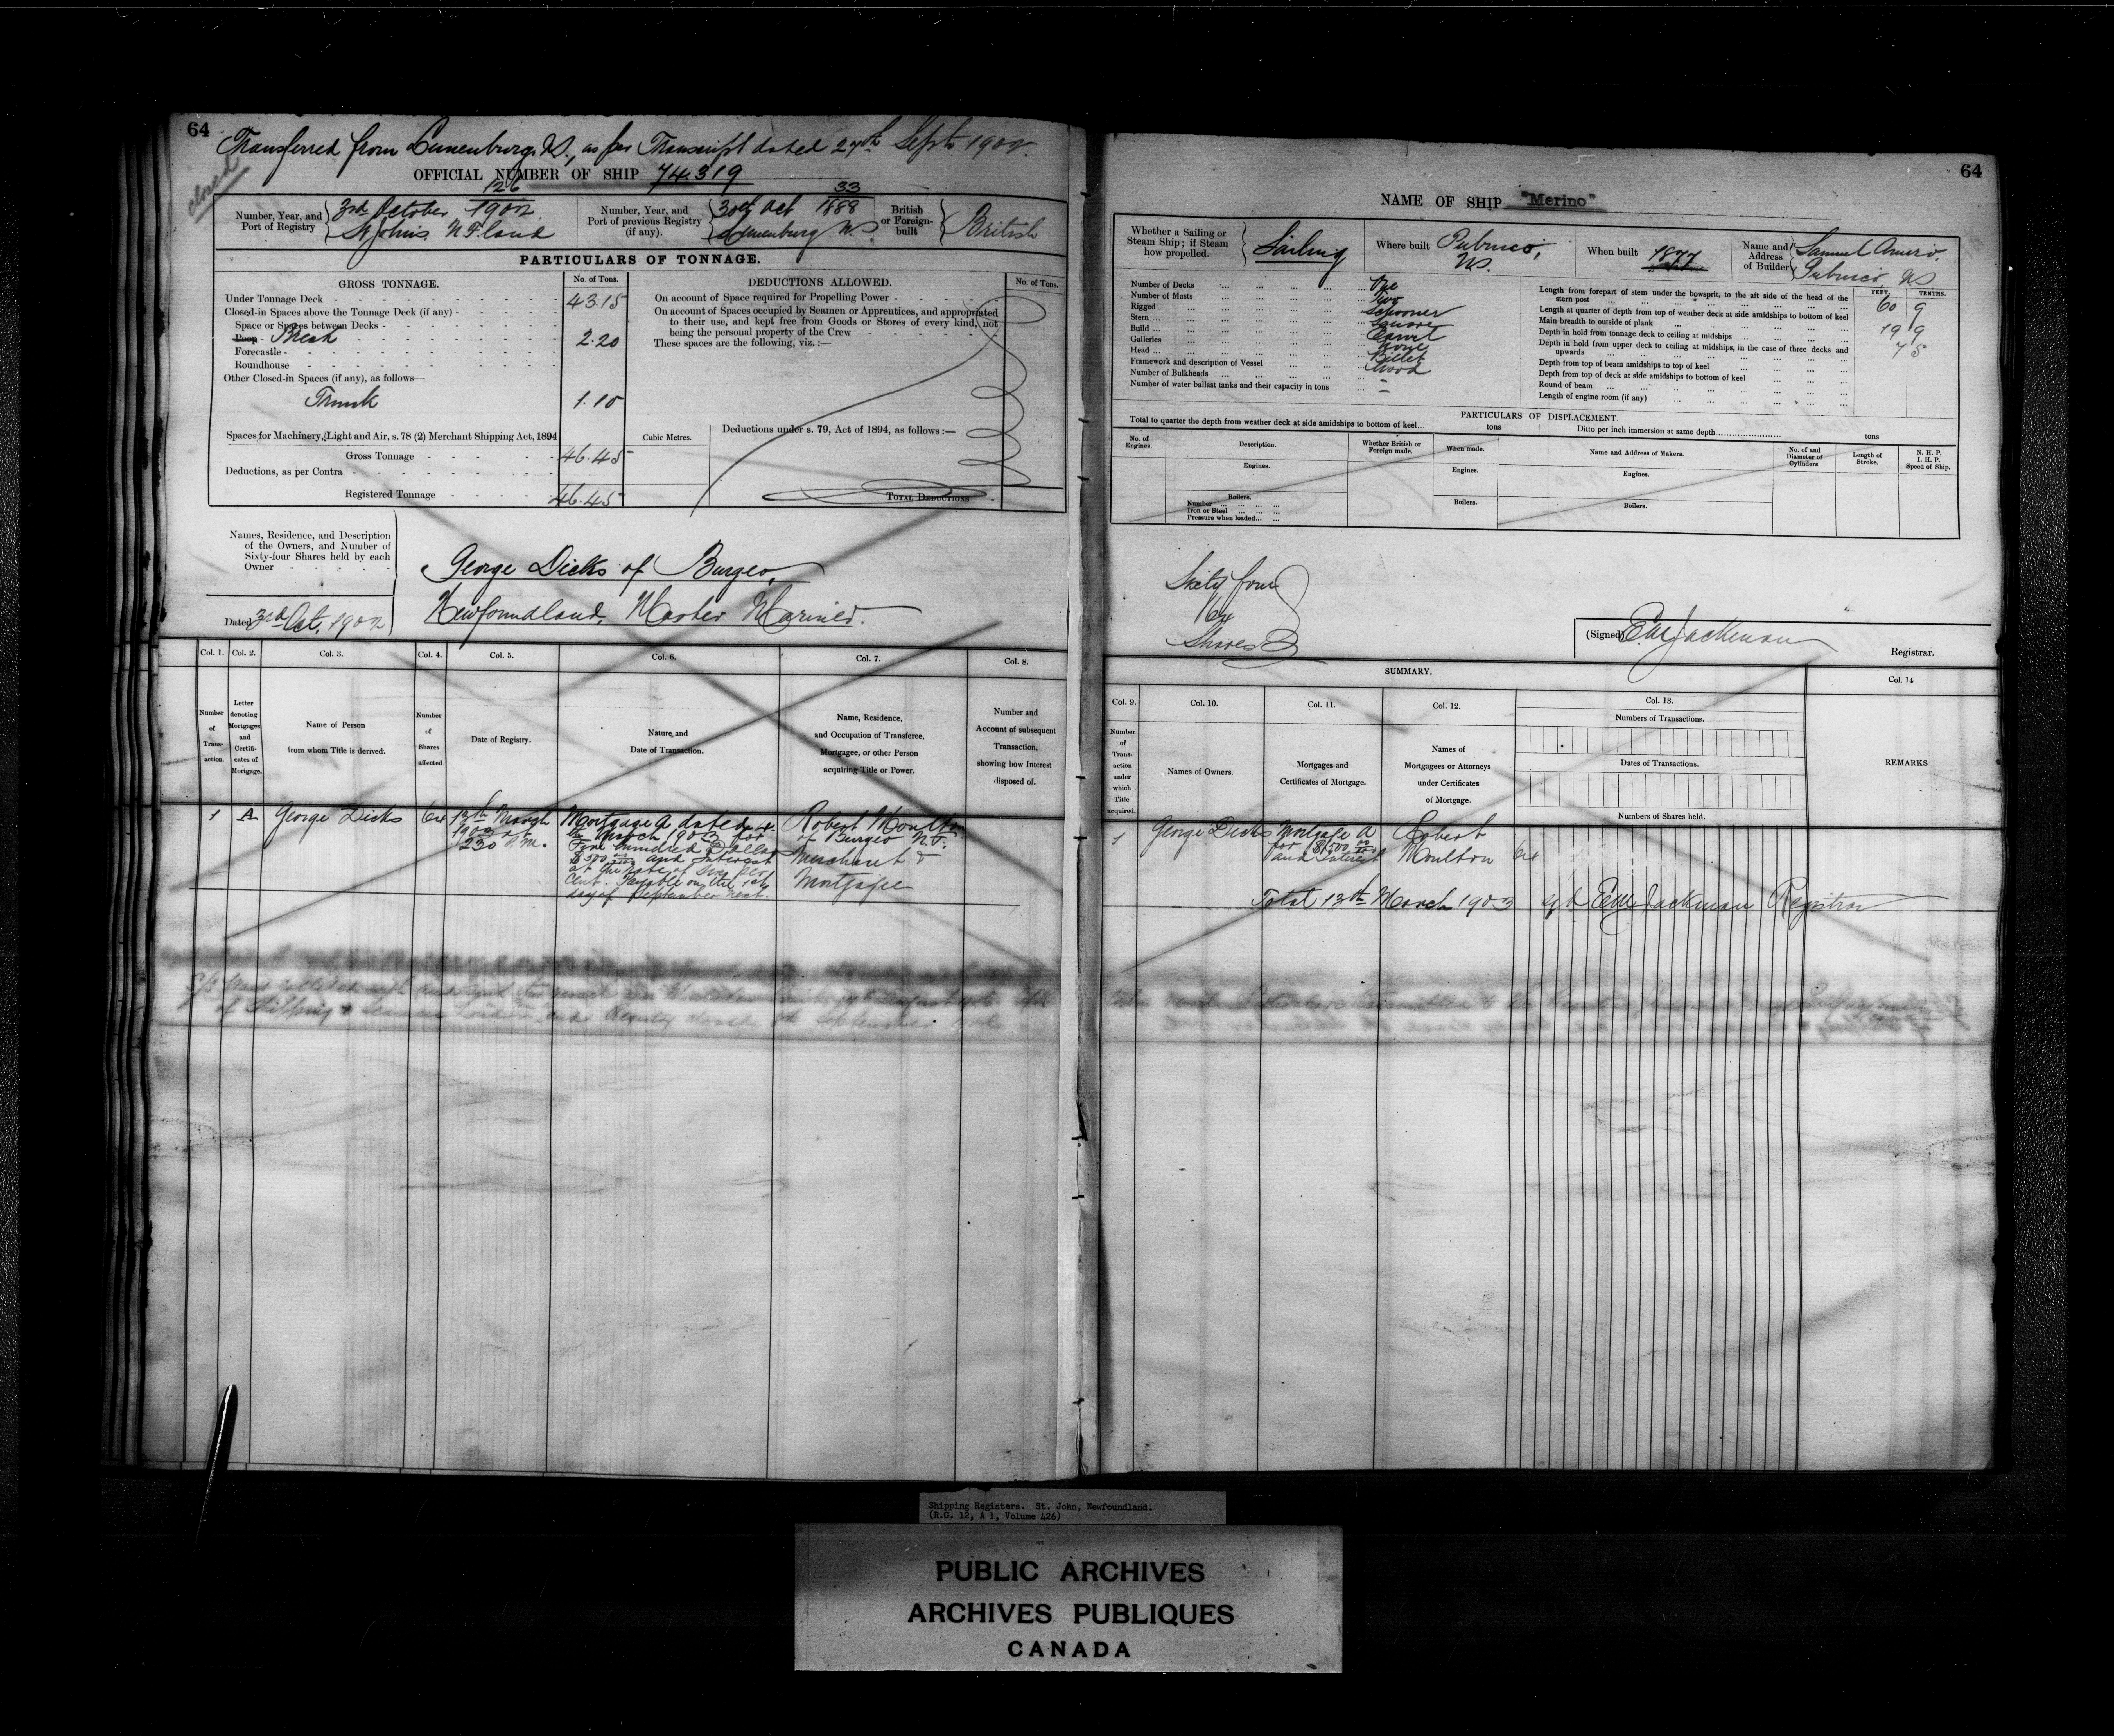 64
Transferred from Lunenburg N.S., as per Transcript dated 27th Sept 1902.
closed
OFFICIAL NUMBER OF SHIP 74.319
Number, Year, and Port of Registry
126
3rd October 1902
St Johns NFland
Number, Year, and Port of previous Registry (if any).
33
30th Oct 1888
Lunenburg N.S
British or Foreign-built
British
PARTICULARS OF TONNAGE.
GROSS TONNAGE.
No. of Tons.
Under Tonnage Deck 43.15
Closed-in Spaces above the Tonnage Deck (if any)
Space or Spaces between Decks
Poop Break 2.20
Forecastle
Roundhouse
Other Closed-in Spaces (if any), as follows—
Trunk 1.10
Spaces for Machinery, Light and Air, s. 78 (2) Merchant Shipping Act, 1894
Gross Tonnage 46.45
Deductions, as per Contra
Registered Tonnage 46.45
Cubic Metres.
DEDUCTIONS ALLOWED.
No. of Tons.
On account of Space required for Propelling Power
On account of Spaces occupied by Seamen or Apprentices, and appropriated
to their use, and kept free from Goods or Stores of every kind, not
being the personal property of the Crew
These spaces are the following, viz. :—
Deductions under s. 79, Act of 1894, as follows :—
TOTAL DEDUCTIONS
Names, Residence, and Description
of the Owners, and Number of
Sixty-four Shares held by each
Owner
Dated 3rd Oct, 1902
George Dicks of Burgeo,
Newfoundland, Master Mariner.
Col. 1. Col. 2. Col. 3. Col. 4. Col. 5. Col. 6. Col. 7. Col. 8.
Number of Trans-action.
Letter denoting Mortgages and Certifi-cates of Mortgage.
Name of Person
from whom Title is derived.
Number of Shares affected.
Date of Registry.
Nature and
Date of Transaction.
Name, Residence,
and Occupation of Transferee,
Mortgagee, or other Person
acquiring Title or Power.
Number and
Account of subsequent
Transaction,
showing how Interest
disposed of.
1 A George Dicks 64
13th March
1903 at
2.30 P.M.
Mortgage A dated
March 1903 for
Five hundred Dollars
$500 and Interest
at the rate of per
Cent. Payable on the 1st
day of September next.
Robert Moulton
of Burgeo N.F.
Merchant
Mortgagee
of Shipping &amp; Seamen London and Registry closed September
64
NAME OF SHIP "Merino"
Whether a Sailing or
Steam Ship; if Steam
how propelled.
Sailing
Where built
Pubnico,
N.S.
When built 1877
Name and
Address
of Builder
Samuel Amero.
Pubnico, N.S.
Number of Decks One
Number of Masts Two
Rigged Schooner
Stern Square
Build Carvel
Galleries None
Head Billet
Framework and description of Vessel Wood
Number of Bulkheads –
Number of water ballast tanks and their capacity in tons –
FEET. TENTHS.
Length from forepart of stem under the bowsprit, to the aft side of the head of the
stern post 60 9
Length at quarter of depth from top of weather deck at side amidships to bottom of keel
Main breadth to outside of plank 19 9
Depth in hold from tonnage deck to ceiling at midships 7 5
Depth in hold from upper deck to ceiling at midships, in the case of three decks and
upwards
Depth from top of beam amidships to top of keel
Depth from top of deck at side amidships to bottom of keel
Round of beam
Length of engine room (if any)
PARTICULARS OF DISPLACEMENT.
Total to quarter the depth from weather deck at side amidships to bottom of keel... tons
Ditto per inch immersion at same depth... tons
No. of Engines.
Description.
Whether British or Foreign made.
When made.
Name and Address of Makers.
No. of and Diameter of Cylinders.
Length of Stroke.
N. H. P.
I. H. P.
Speed of Ship.
Engines. Engines. Engines.
Boilers. Boilers. Boilers.
Number
Iron or Steel
Pressure when loaded
Sixty four
64
Shares
(Signed) E.W. Jackman
Registrar.
SUMMARY.
Col. 9. Col. 10. Col. 11. Col. 12. Col. 13. Col. 14
Number of Trans-action under which Title acquired.
Names of Owners.
Mortgages and
Certificates of Mortgage.
Names of
Mortgagees or Attorneys
under Certificates
of Mortgage.
Numbers of Transactions.
Dates of Transactions.
Numbers of Shares held.
REMARKS
1 George Dicks
Mortgage A
for $500
and Interest
Robert
Moulton 64
Total 13th March 1903 sgd E.W. Jackman Registrar
Shipping Registers. St. John, Newfoundland.
(R.G. 12, A 1, Volume 426)
PUBLIC ARCHIVES
ARCHIVES PUBLIQUES
CANADA